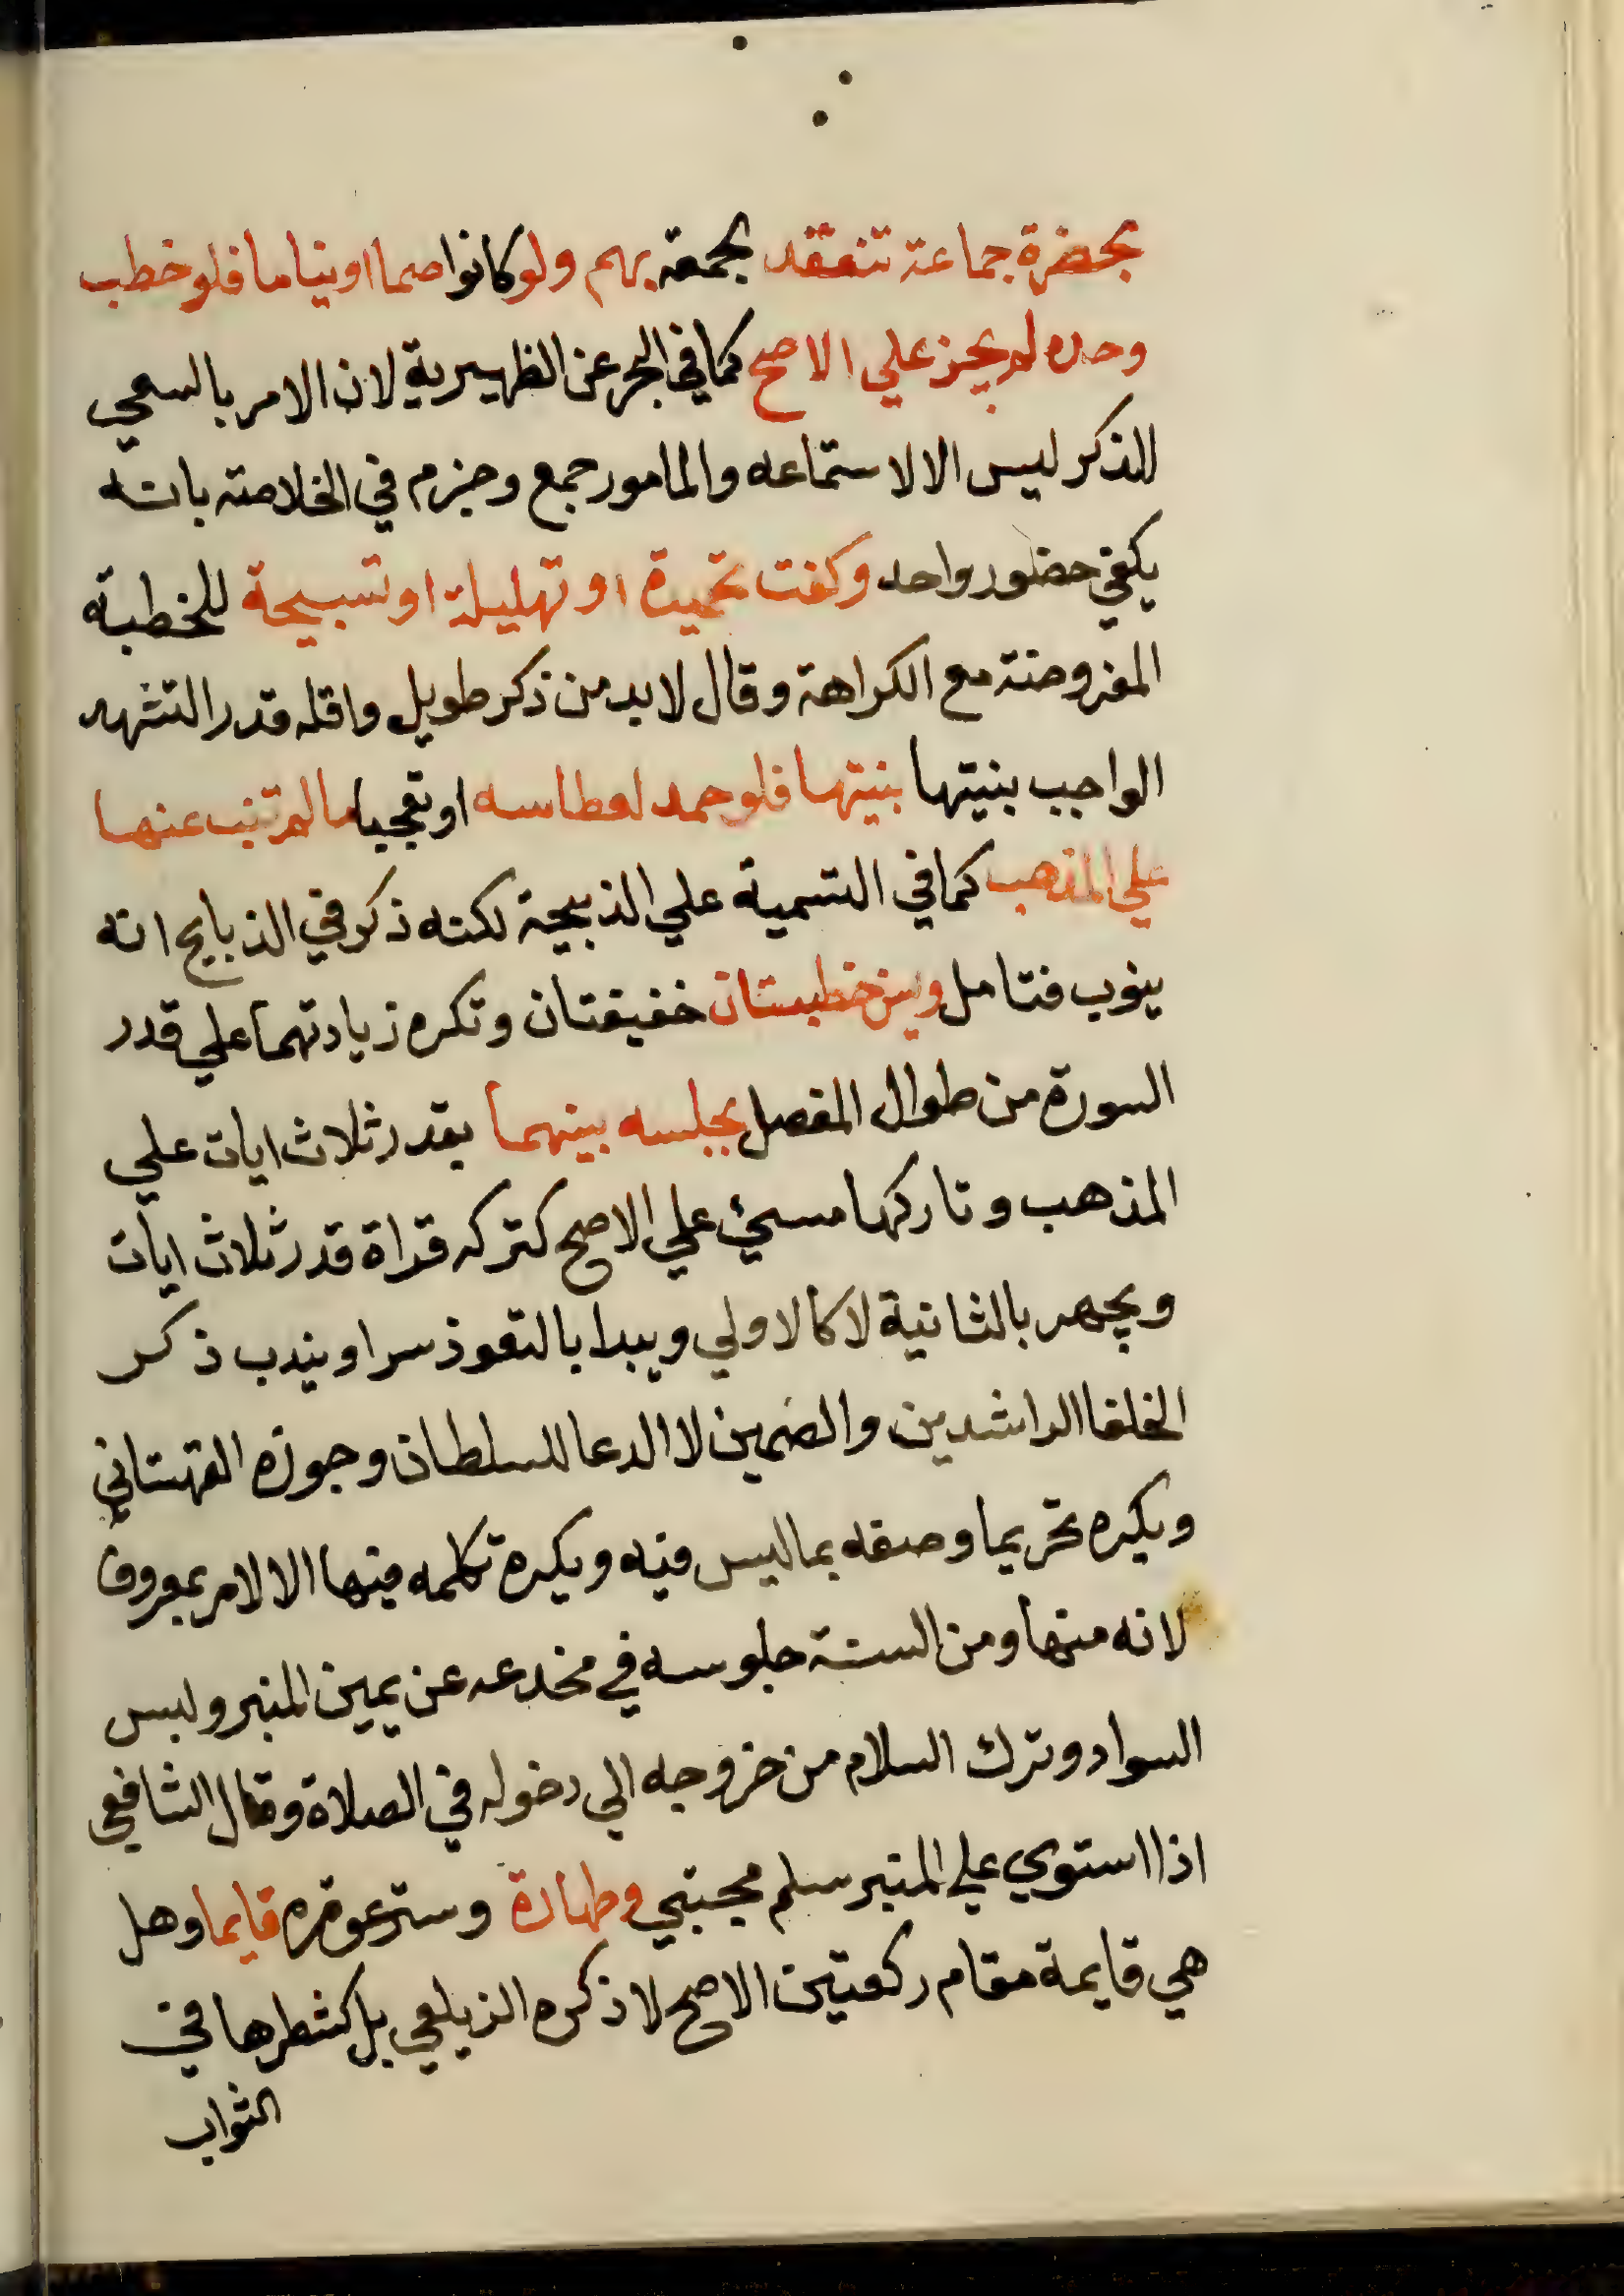 بحضرة جماعة تنعقد الجمعة بهم ولو كانوا صما او نياما فلو خطب
وحده لم يجز علي الاصح كما في البحر عن الظهيرية لان الامر بالسعي
للذكر ليس الا لاستماعه والمامور جمع وجزم في الخلاصة بانه
يكفي حضور واحد وكفت تحميدة او تهليلة او تسبيحة للخطبة
المفروضة مع الكراهة وقال لابد من ذكر طويل واقله قدر التشهد
الواجب بنيتها بنيتها فلو حمد لعطاسه او تعجبا ما لم تنب عنها
علي المذهب كما في التسمية علي الذبيحة لكنه ذكر في الذبايح انه
ينوب فتامل ويسن خطبستان خفيفتان وتكره زيادتهما علي قدر
السورة من طوال المفصل بجلسه بينهما بقدر ثلاث ايات علي
المذهب وتاركها مسيئ علي الاصح كتركه قراة قدر ثلاث ايات
ويجهر بالثانية لا كالاولي ويبدا بالتعوذ سرا ويندب ذكر
الخلفا الراشدين والضمين لا الدعا للسلطان وجوزه القهستاني
ويكره تحريما وصفه بما ليس فيه ويكره تكلمه فيها الا لامر بمعروف
لانه منها ومن السنة جلوسه في مخدعه عن يمين المنبر ولبس
السواد وترك السلام من خروجه الي دخوله في الصلاة وقال الشافعي
اذا استوي علي المنبر سلم مجتبي وطهارة وستر عورة قايما وهل
هي قايمة مقام ركعتين الاصح لا ذكره الزيلعي بل كشطرها في
الثواب